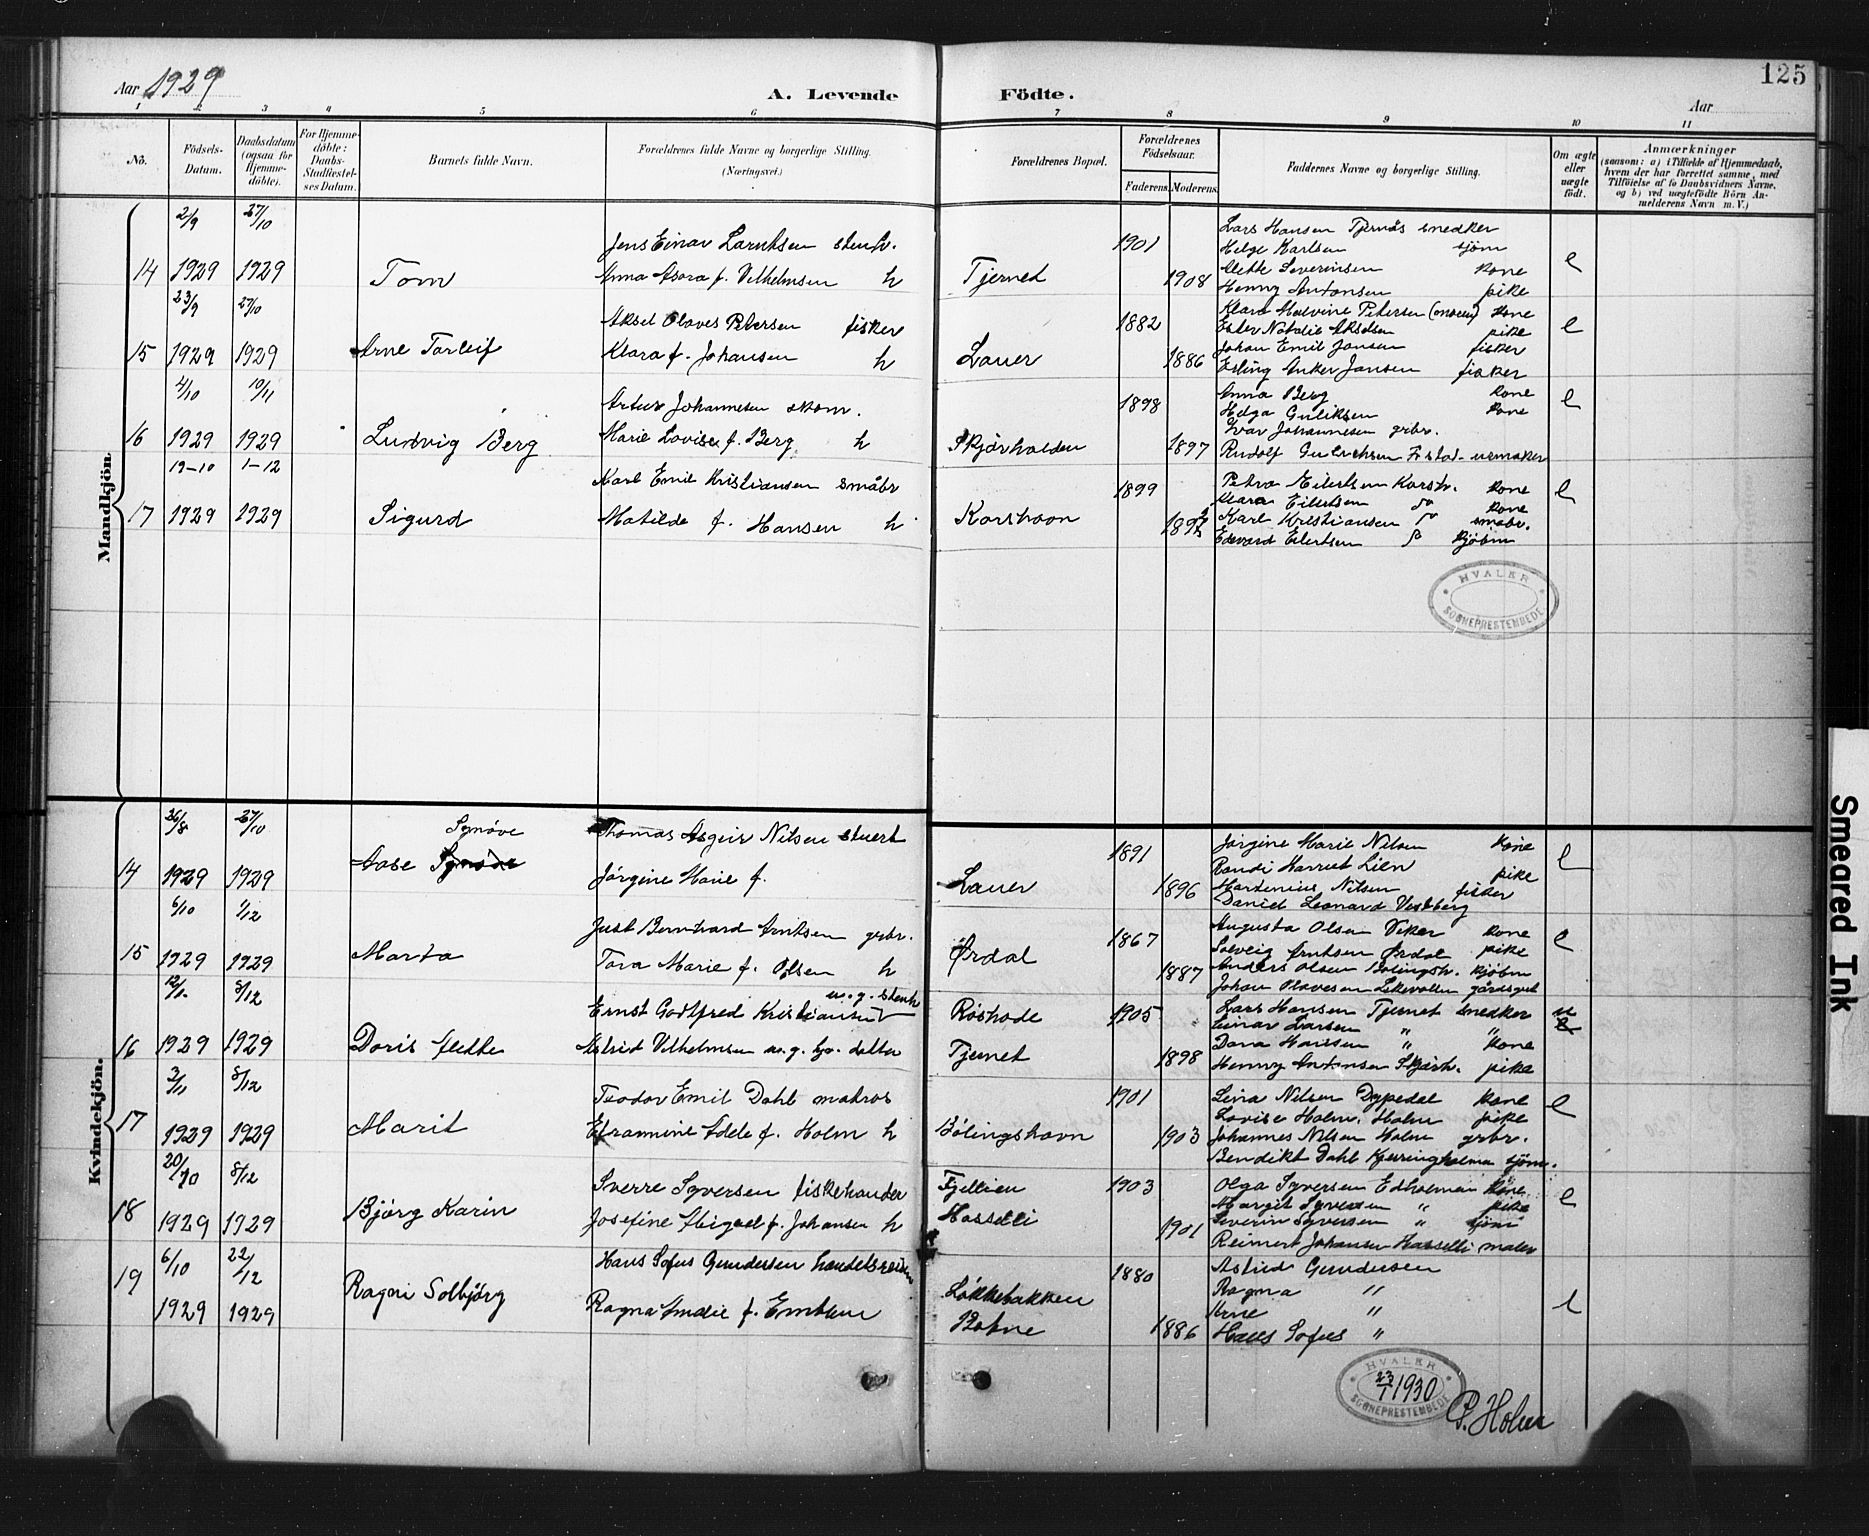 Aar 1929
A. Levende Födte.
125
Aar
1 2 3 4 5 6 7 8 9 10 11
No.
Födsels-Datum.
Daabsdatum (ogsaa for Hjemme-döbte).
For Hjemme-döbte: Daabs-Stadfæstel-ses Datum.
Barnets fulde Navn.
Forældrenes fulde Navne og borgerlige Stilling. (Næringsvei.)
Forældrenes Bopæl.
Forældrenes Födselsaar.
Faderens. Moderens.
Faddernes Navne og borgerlige Stilling.
Om ægte eller uægte födt.
Anmærkninger
(saasom: a) i Tilfælde af Hjemmedaab,
hvem der har forrettet samme, med
Tilföielse af to Daabsvidners Navne,
og b) ved uægtefödte Börn An-
melderens Navn m. V.)
Mandkjön.
14 2/9 1929 27/10 1929 Tom
Jens Einar Larntsen stenh.
Anna Asora f. Vilhelmsen h
Tjernet 1901 1908
Lars Hansen Tjernes snedker
Helge Karlsen sjöm
Mette Severinsen kone
Henny Antonsen pike
e
15 23/9 1929 27/10 1929 Arne Torleif
Aksel Olaves Petersen fisker
Klara f. Johansen h
Lauer 1882 1886
Klara Malvine Petersen (moren) kone
Ester Natalie Akselsen pike
Johan Emil Jansen fisker
Erling Anker Jansen fisker
e
16 4/10 1929 10/11 1929 Ludvig Berg
Artur Johannesen skom.
Marie Lovise f. Berg h
Skjärhalden 1898 1897
Anna Berg kone
Helga Guliksen kone
Ivar Johannesen grbr.
Rudolf Gulichsen Fr.stad urmaker
e
17 19-10 1929 1-12 1929 Sigurd
Karl Emil Kristiansen småbr
Matilde f. Hansen h
Korshavn 1899
Petra Eilertsen Korsh. kone
Klara Eilertsen do kone
Karl Kristiansen do småbr.
Edvard Eilertsen do kjöbm
e
HVALER SOGNEPRESTEMBEDE
Kvindekjön.
14 26/8 1929 27/10 1929 Aase Synøve
Thomas Asgeir Nilsen stuert
Jørgine Marie f.
Lauer 1891 1896
Jørgine Marie Nilsen kone
Randi Harriet Lien pike
Martinius Nilsen fisker
Daniel Leonard Vestberg
e
15 6/10 1929 1/12 1929 Marta
Just Bernhard Arntsen grbr.
Tora Marie f. Olsen h
Ørdal 1867 1887
Augusta Olsen Viker kone
Solveig Arntsen Ørdal pike
Anders Olsen Bølingsh. kjöbm
Johan Olavesen Lekevollen
e
16 1929 8/12 1929 Doris Mette
u.g. stenh
Ernst Godtfred Kristiansen
Astrid Vilhelmsen u.g. hj. datter
Røshode
Tjernet 1905 1898
Lars Hansen Tjernet snedker
Einar Larsen " "
Dora Hansen " kone
Henny Antonsen Skjärh. pike
u
17 3/11 1929 8/12 1929 Marit
Teodor Emil Dahl matros
Eframine Adele f. Holm h
Bölingshavn 1901 1903
Lina Nilsen Dypedal kone
Lovise Holm, Holm pike
Johannes Nilsen Holm grbr.
Bendikt Dahl Kjerringholmen sjöm.
e
18 20/10 1929 8/12 1929 Björg Karin
Sverre Syversen fiskehandler
Josefine Abigael f. Johansen h
Fjellien
Hasselli 1903 1901
Olga Syversen Edholmen kone
Margit Syversen " pike
Severin Syversen " sjöm
Reimert Johansen Hasselli maler
e
19 6/10 1929 22/12 1929 Ragni Solbjörg
Hans Sofus Gundersen handelsreisen
Ragna Amalie f. Emblem
Løkkebakken
Botne 1880 1886
Astrid Gundersen
Ragna "
Arne "
Hans Sofus "
e
HVALER SOGNEPRESTEMBEDE
23/1 1930
P. Holm
Smeared Ink